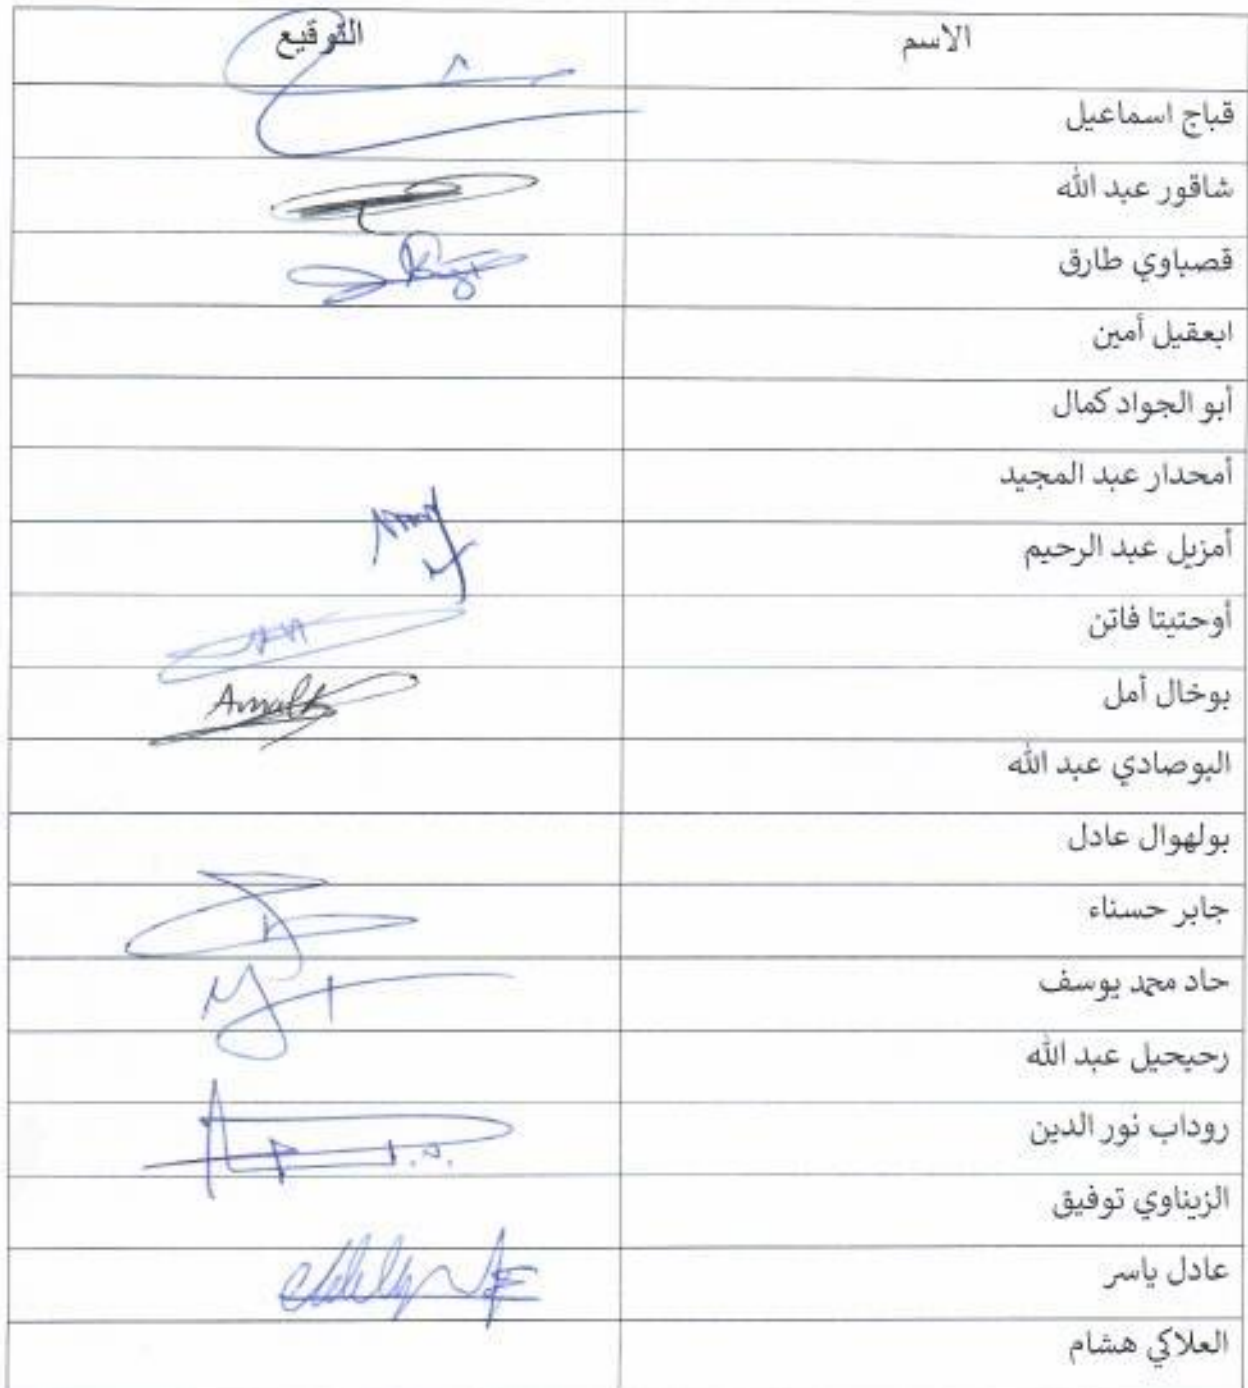 الاسم التوقيع
قباج اسماعيل
شاقور عبد الله
قصباوي طارق
ابعقيل أمين
أبو الجواد كمال
أمحدار عبد المجيد
أمزيل عبد الرحيم
أوحتيتا فاتن
بوخال أمل
البوصادي عبد الله
بولهوال عادل
جابر حسناء
حاد محمد يوسف
رحيحيل عبد الله
روداب نور الدين
الزيناوي توفيق
عادل ياسر
العلاكي هشام